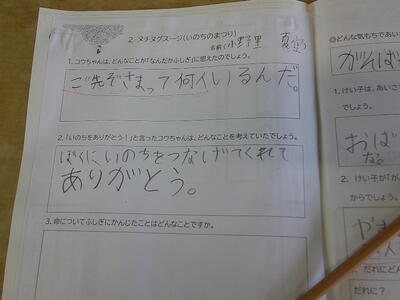 2. ヌチヌグスージ(いのちのまつり)
名前( 小野里 夏空 )
1. コウちゃんは、どんなことが「なんだかふしぎ」に思えたのでしょう。
ご先ぞさまって何人いるんだ。
2. 「いのちをありがとう!」と言ったコウちゃんは、どんなことを考えていたでしょう。
ぼくにいのちをつなげてくれて
ありがとう。
3. 命についてふしぎにかんじたことはどんなことですか。
◎どんな気もちであい
がんば
1. けい子は、あいさ
でしょう。
おば
な。
2. けい子が「が
からでしょう。
やま
だれにどん
だれに?